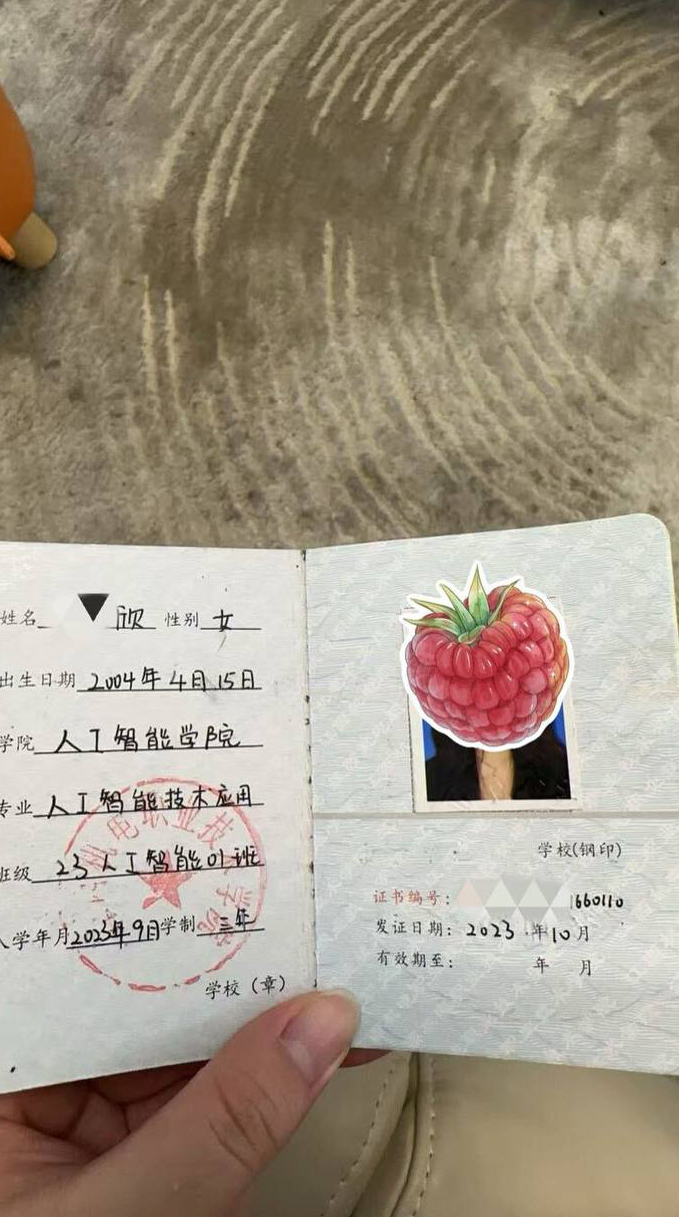 姓名 欣 性别 女
出生日期 2004年4月15日
学院 人工智能学院
专业 人工智能技术应用
班级 23人工智能01班
入学年月 2023年9月 学制 三年
学校（章）
机电职业技 学院
学校(钢印)
证书编号： 1660110
发证日期： 2023 年 10 月
有效期至： 年 月